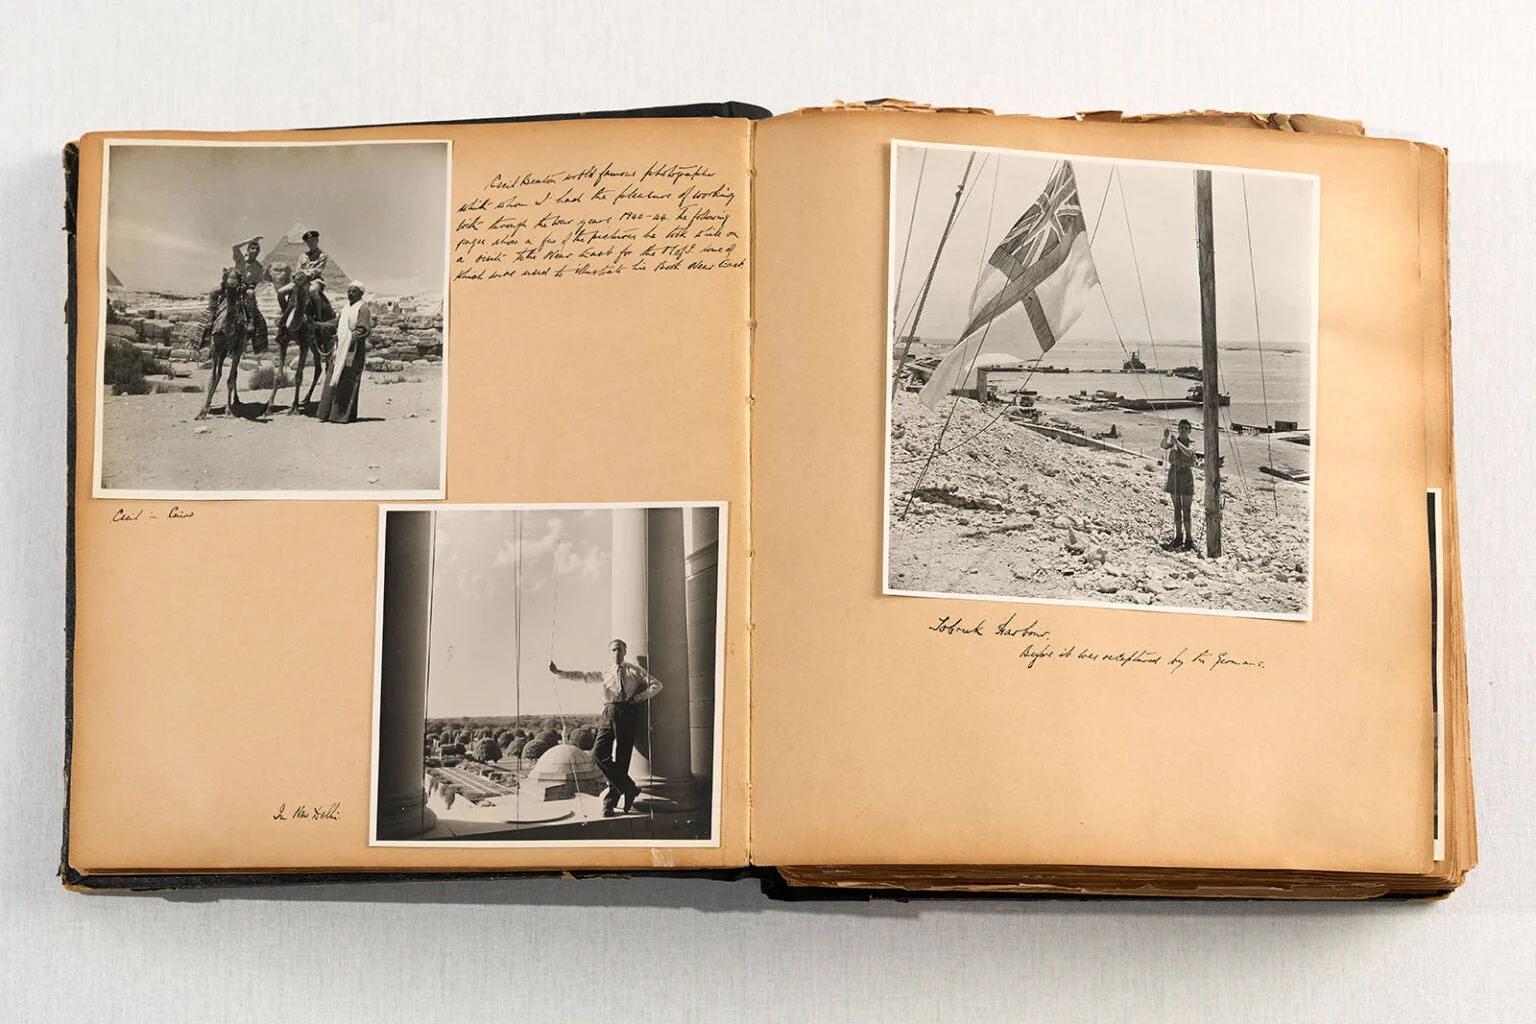 Cecil Beaton world famous photographer
with whom I had the pleasure of working
with through the war years 1940-44. The following
pages show a few of the pictures he took while on
a visit to the Near East for the M of I. some of
which were used to illustrate his Book Near East
Cecil in Cairo
In New Delhi.
Tobruk Harbour.
Before it was recaptured by the Germans.